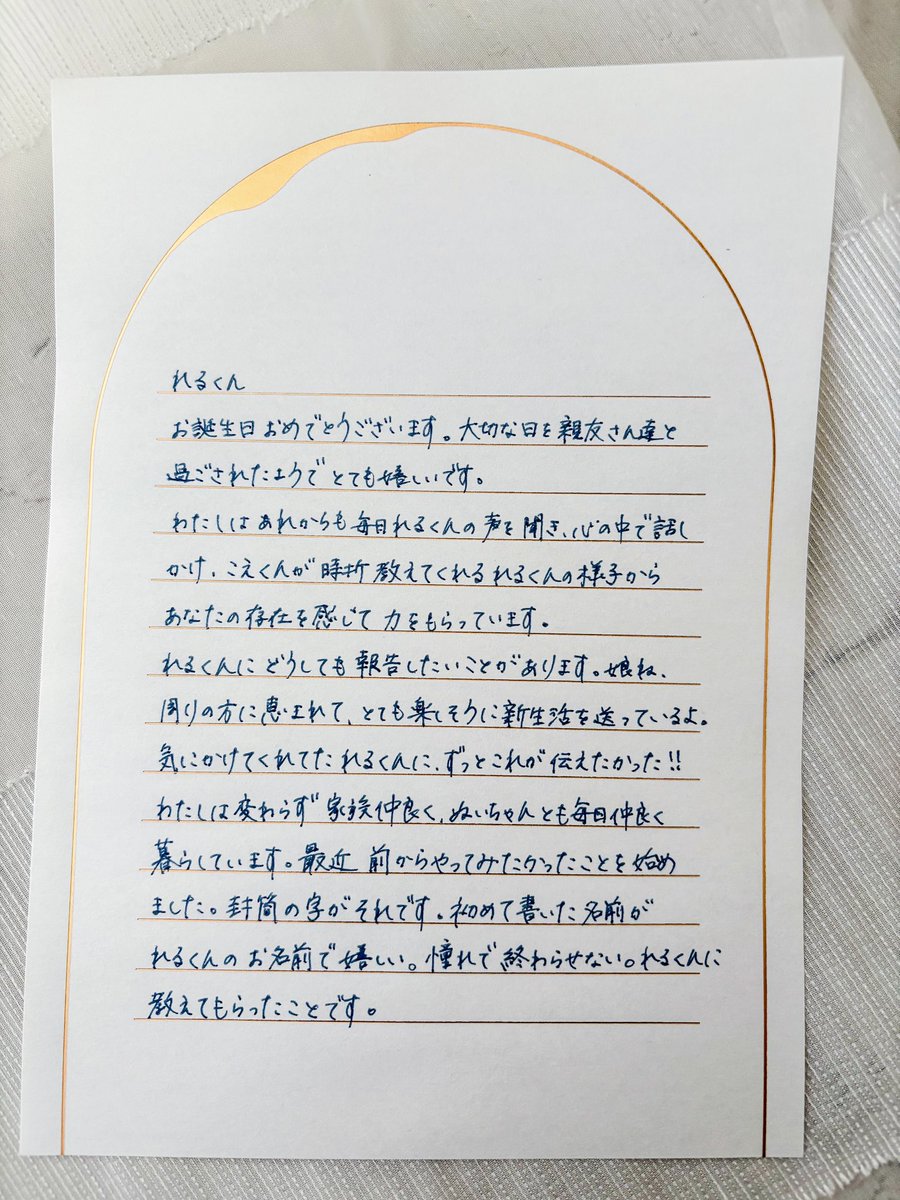 れるくん
お誕生日おめでとうございます。大切な日を親友さん達と
過ごされたようでとても嬉しいです。
わたしはあれからも毎日れるくんの声を聞き、心の中で話し
かけ、こえくんが時折教えてくれるれるくんの様子から
あなたの存在を感じて力をもらっています。
れるくんにどうしても報告したいことがあります。娘ね、
周りの方に恵まれて、とても楽しそうに新生活を送っているよ。
気にかけてくれてたれるくんに、ずっとこれが伝えたかった!!
わたしは変わらず家族仲良く、ぬいちゃんとも毎日仲良く
暮らしています。最近前からやってみたかったことを始め
ました。封筒の字がそれです。初めて書いた名前が
れるくんのお名前で嬉しい。憧れで終わらせない。れるくんに
教えてもらったことです。